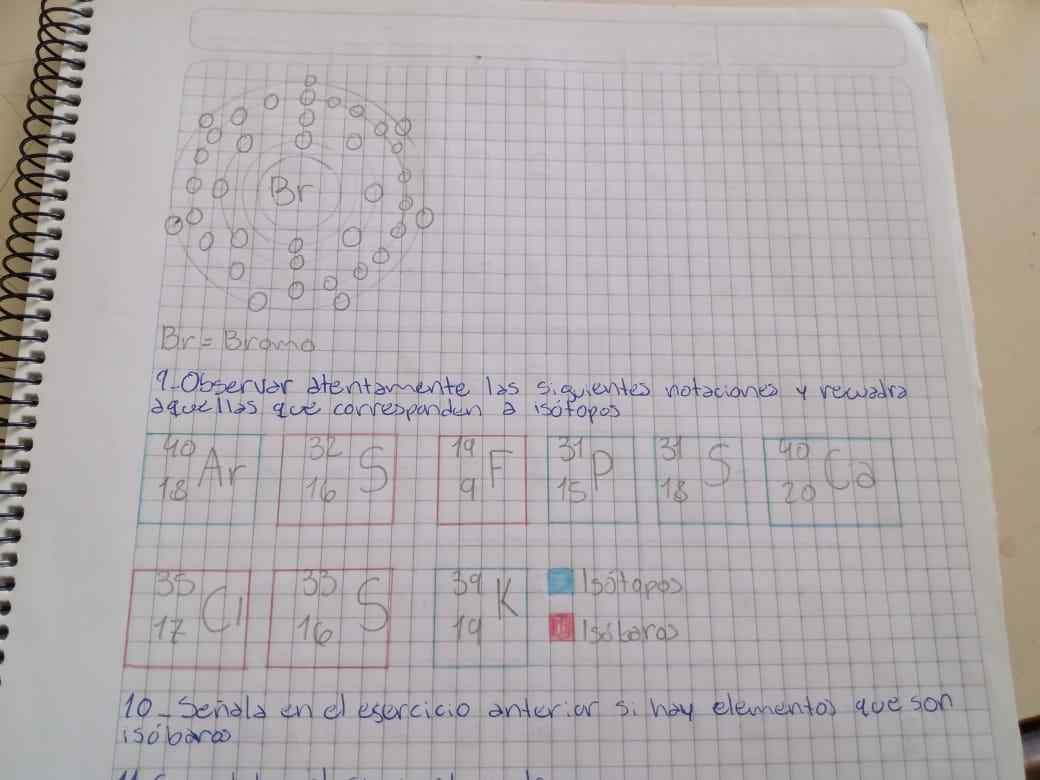 Br
Br = Bromo
9-Observar atentamente las siguientes notaciones y recuadra
aquellas que corresponden a isótopos
40 18 Ar 32 16 S 19 9 F 31 15 P 31 18 S 40 20 Ca
35 17 Cl 33 16 S 39 19 K Isótopos
Isóbaros
10-Señala en el esercicio anterior si hay elementos que son
isóbaros